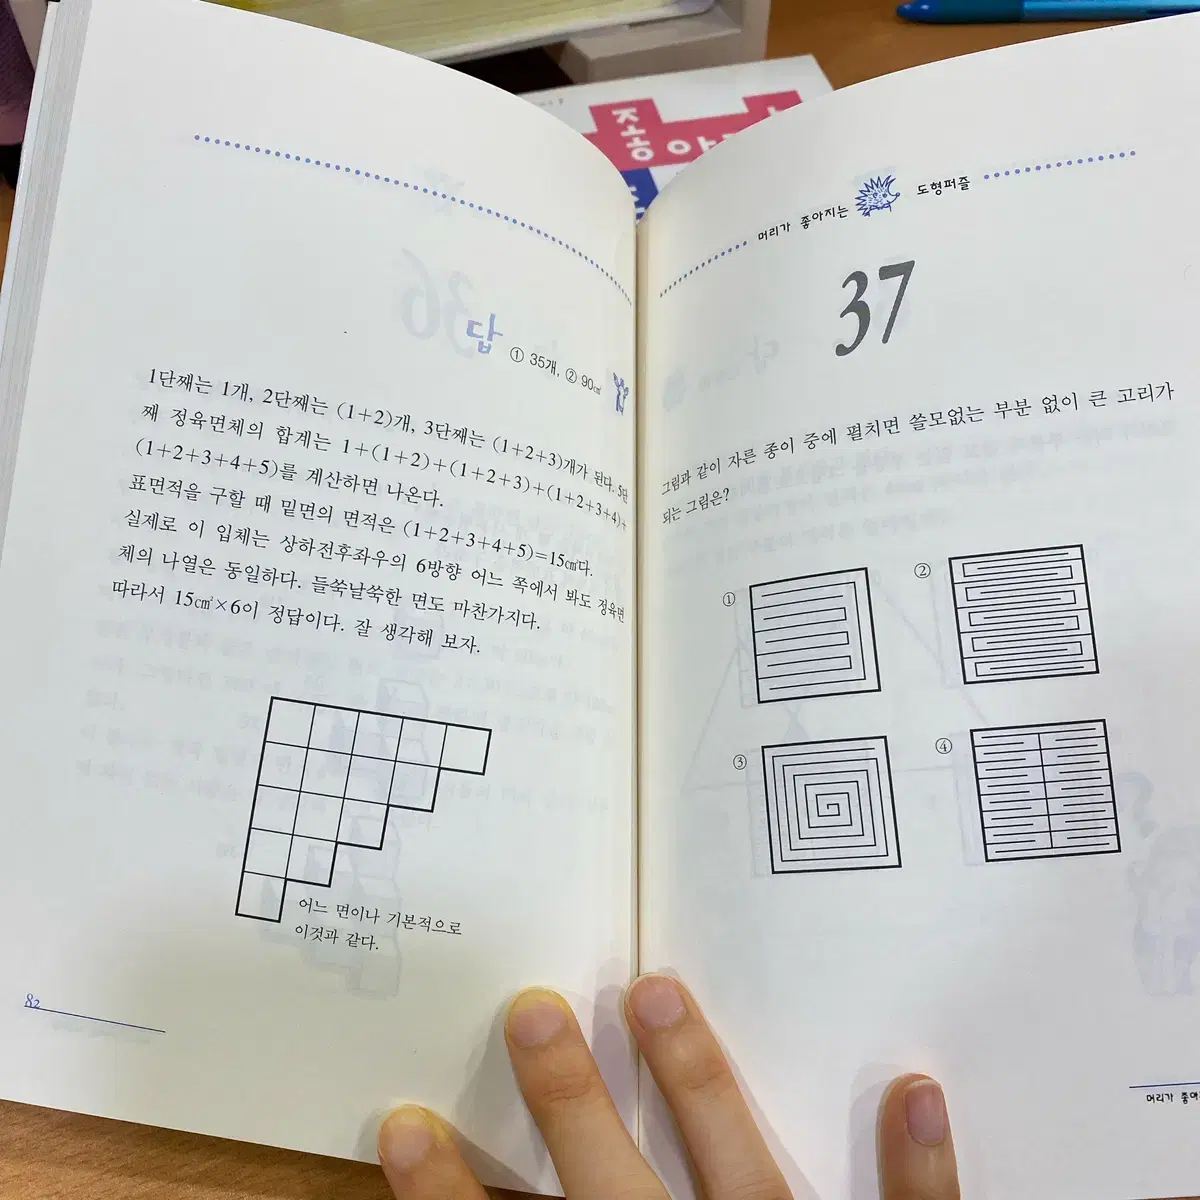 좋아
36
답 ① 35개, ② 90㎠
1단째는 1개, 2단째는 (1+2)개, 3단째는 (1+2+3)개가 된다. 5단
째 정육면체의 합계는 1+(1+2)+(1+2+3)+(1+2+3+4)+
(1+2+3+4+5)를 계산하면 나온다.
표면적을 구할 때 밑면의 면적은 (1+2+3+4+5)=15㎠다.
실제로 이 입체는 상하전후좌우의 6방향 어느 쪽에서 봐도 정육면
체의 나열은 동일하다. 들쑥날쑥한 면도 마찬가지다.
따라서 15㎠×6이 정답이다. 잘 생각해 보자.
어느 면이나 기본적으로
이것과 같다.
82
머리가 좋아지는 도형퍼즐
37
그림과 같이 자른 종이 중에 펼치면 쓸모없는 부분 없이 큰 고리가
되는 그림은?
①
②
③
④
머리가 좋아